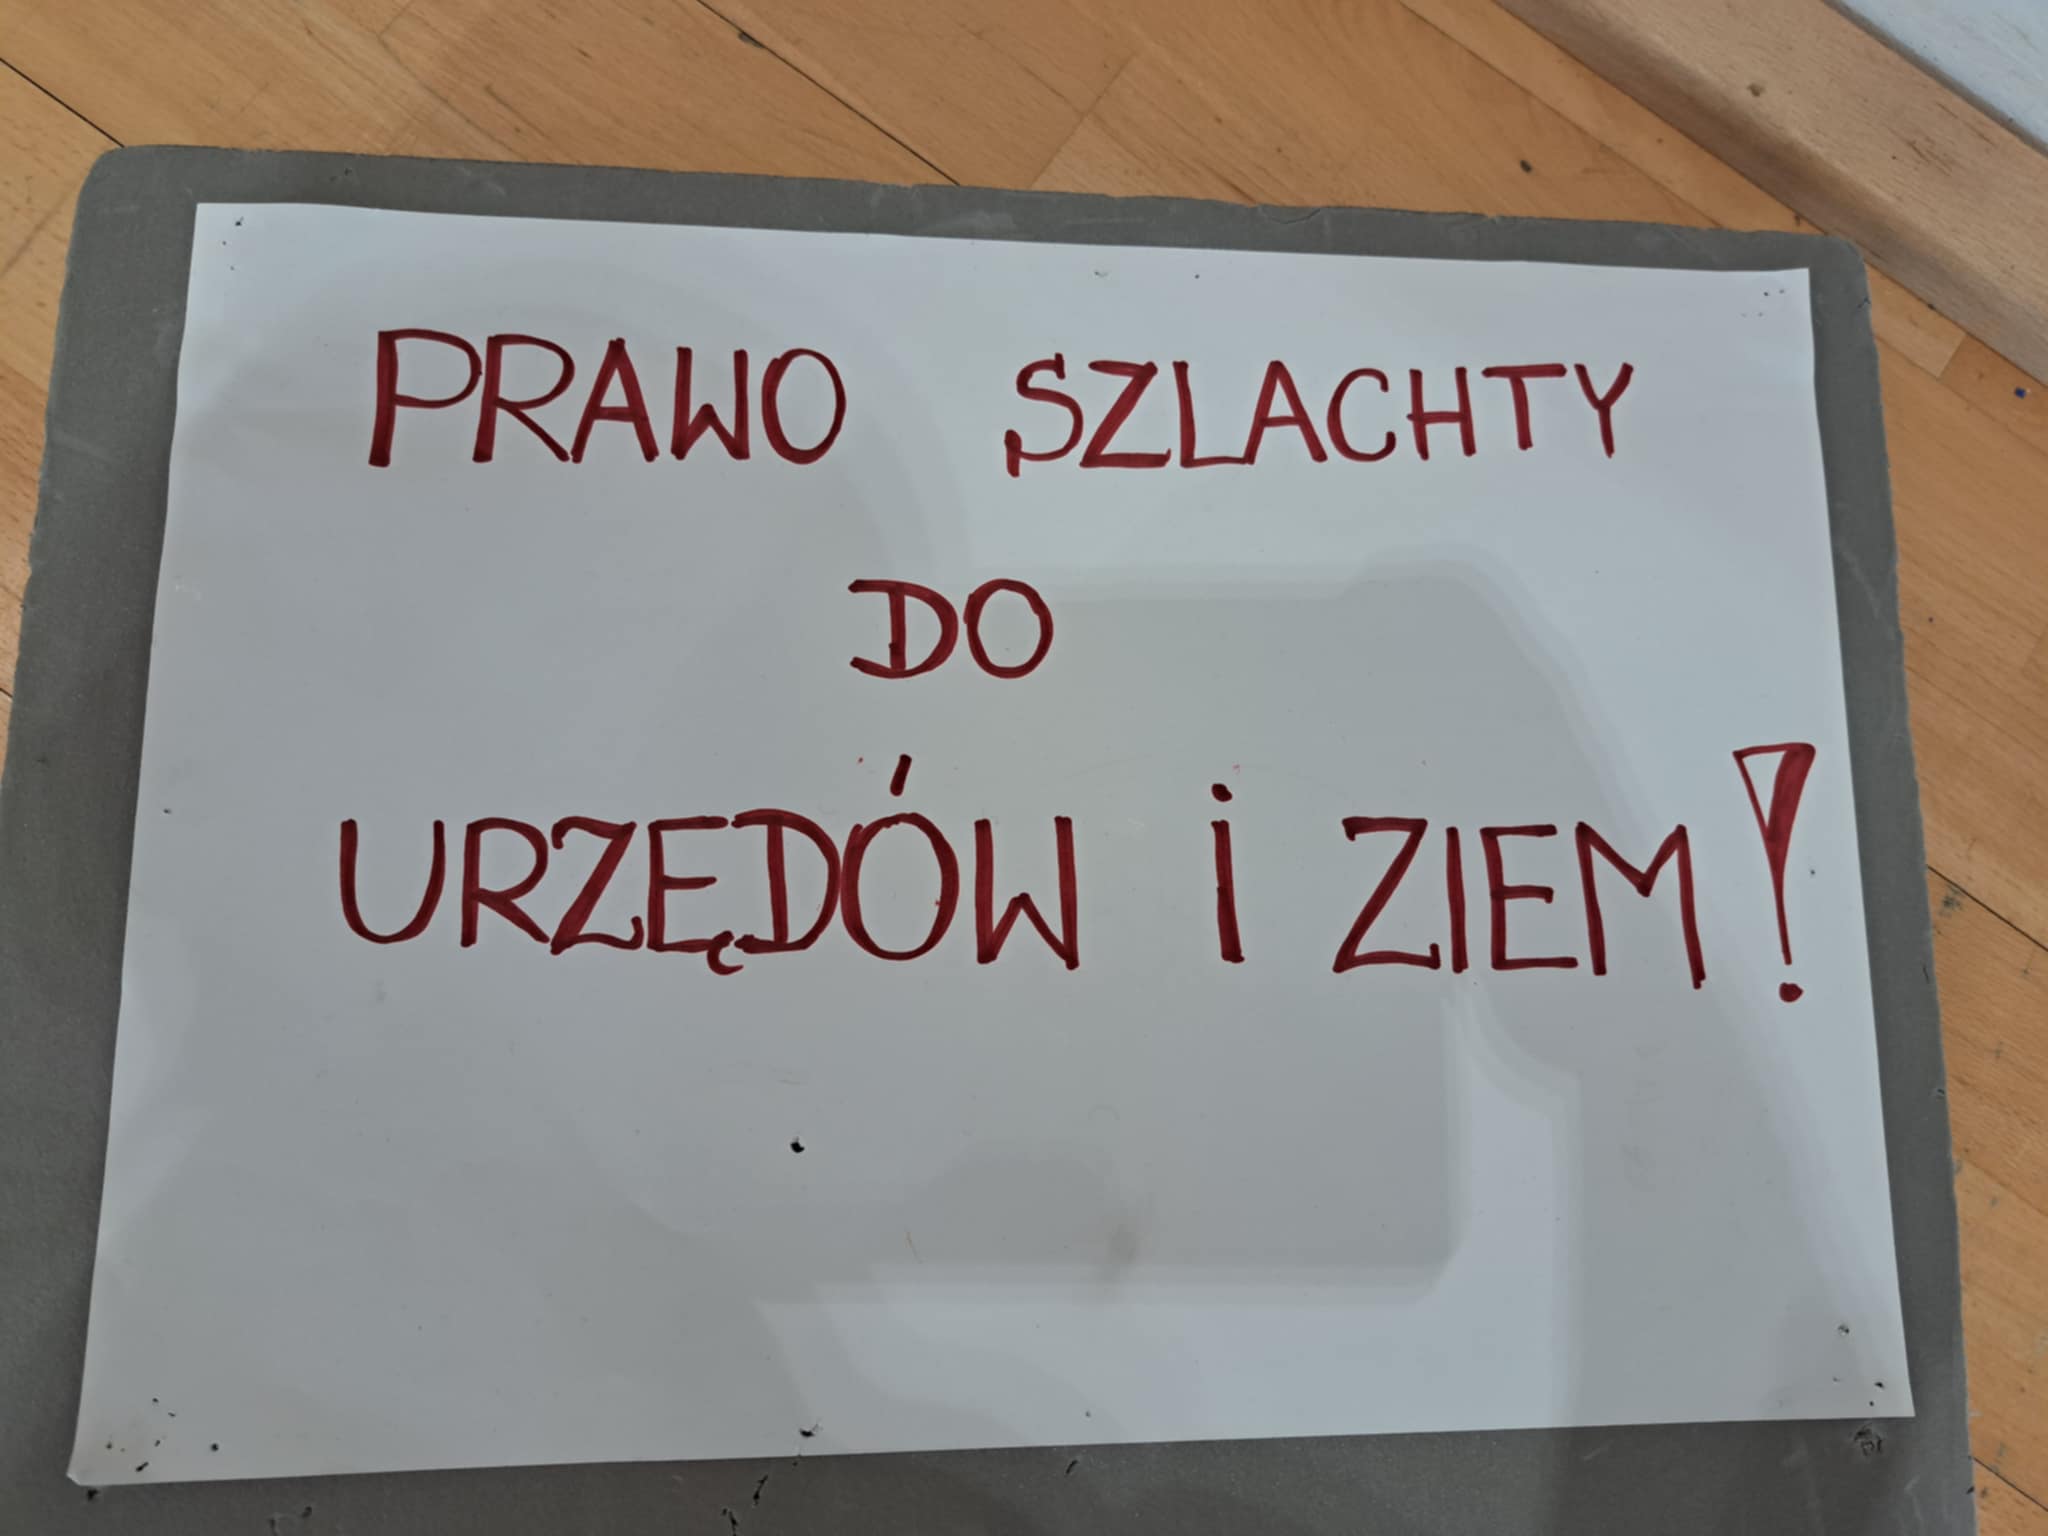 PRAWO SZLACHTY
DO
URZĘDÓW i ZIEM!